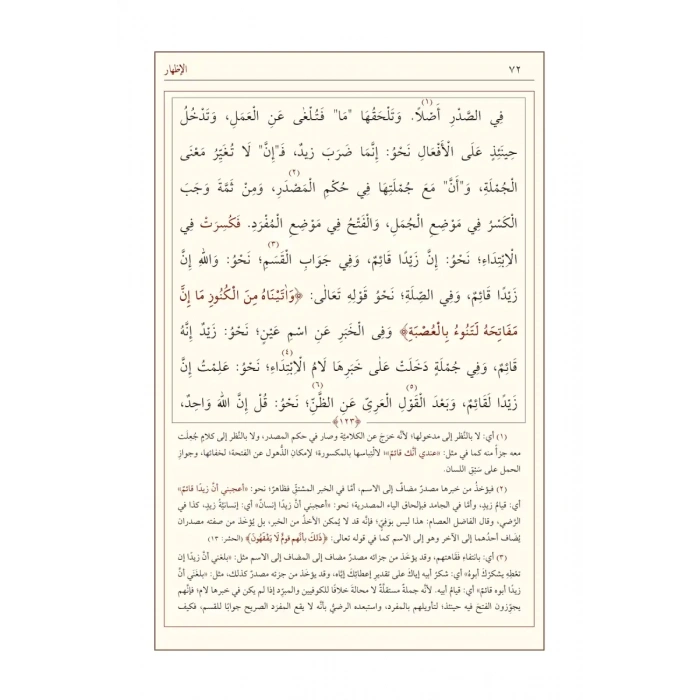 ٧٢ الإظهار
فِي الصَّدْرِ أَصْلًا.(١) وَتَلْحَقُهَا "مَا" فَتُلْغٰى عَنِ الْعَمَلِ، وَتَدْخُلُ
حِينَئِذٍ عَلَى الْأَفْعَالِ نَحْوُ: إِنَّمَا ضَرَبَ زيدٌ، فَـ"إِنَّ" لَا تُغَيِّرُ مَعْنَى
الْجُمْلَةِ، وَ"أَنَّ" مَعَ جُمْلَتِهَا فِي حُكْمِ الْمَصْدَرِ،(٢) وَمِنْ ثَمَّةَ وَجَبَ
الْكَسْرُ فِي مَوْضِعِ الْجُمَلِ، وَالْفَتْحُ فِي مَوْضِعِ الْمُفْرَدِ. فَكُسِرَتْ فِي
الْاِبْتِدَاءِ؛ نَحْوُ: إِنَّ زَيْدًا قَائِمٌ، وَفِي جَوَابِ الْقَسَمِ؛(٣) نَحْوُ: وَاللهِ إِنَّ
زَيْدًا قَائِمٌ، وَفِي الصِّلَةِ؛ نَحْوُ قَوْلِهِ تَعَالٰى: ﴿وَاٰتَيْنَاهُ مِنَ الْكُنُوزِ مَا إِنَّ
مَفَاتِحَهُ لَتَنُوءُ بِالْعُصْبَةِ﴾ وَفِى الْخَبَرِ عَنِ اسْمِ عَيْنٍ؛ نَحْوُ: زَيْدٌ إِنَّهُ
قَائِمٌ، وَفِي جُمْلَةٍ دَخَلَتْ عَلٰى خَبَرِهَا لَامُ الْاِبْتِدَاءِ؛(٤) نَحْوُ: عَلِمْتُ إِنَّ
زَيْدًا لَقَائِمٌ، وَبَعْدَ الْقَوْلِ(٥) الْعَرِيِّ عَنِ الظَّنِّ؛(٦) نَحْوُ: قُلْ إِنَّ اللهَ وَاحِدٌ،
﴿١٢٣﴾
(١) أي: لا بالنَّظر إلى مدخولها؛ لأنَّه خرج عن الكلاميَّة وصار في حكم المصدر، ولا بالنَّظر إلى كلامٍ جُعِلَت
معه جزأً منه كما في مثل: «عندي أنَّك قائمٌ»؛ لالتِباسها بالمكسورة؛ لإمكان الذُّهول عن الفتحة؛ لخفائها، وجوازِ
الحمل على سَبْق اللسان.
(٢) فيؤخَذ من خبرها مصدرٌ مضافٌ إلى الاسم، أمَّا في الخبر المشتقِّ فظاهرٌ؛ نحو: «أعجبني أنَّ زيدًا قائمٌ»
أي: قيامُ زيدٍ، وأمَّا في الجامد فبإلحاق الياء المصدرية؛ نحو: «أعجبني أنَّ زيدًا إنسانٌ» أي: إنسانيَّةُ زيدٍ، كذا في
الرَّضي، وقال الفاضل العصام: هذا ليس بوَفِيٍّ؛ فإنَّه قد لا يُمكن الأخذُ من الخبر، بل يُؤخَذ من صفته مصدران
يُضاف أحدُهما إلى الآخر وهو إلى الاسم كما في قوله تعالى: ﴿ذٰلك بأنَّهم قومٌ لَا يَفْقَهُونَ﴾ (الحشر: ١٣)
(٣) أي: بانتفاءِ فَقَاهتهم، وقد يؤخَذ من جزائه مصدرٌ مضاف إلى المضاف إلى الاسم مثل: «بلغني أنَّ زيدًا إن
تعْطِه يشكرْك أبوهُ» أي: شكرُ أبيه إياكَ على تقدير إعطائكَ إيَّاه، وقد يؤخَذ من جزئه مصدرٌ كذلك، مثل: «بلغني أنَّ
زيدًا أبوه قائمٌ» أي: قيامُ أبيه. لأنَّه جملةٌ مستقلَّةٌ لا محالةَ خلافًا للكوفيين والمبرِّد إذا لم يكن في خبرها لام؛ فإنَّهم
يجوِّزون الفتحَ فيه حينئذ؛ لتأويلهم بالمفرد، واستبعده الرضيُّ بأنَّه لا يقع المفرد الصريح جوابًا للقسم، فكيف